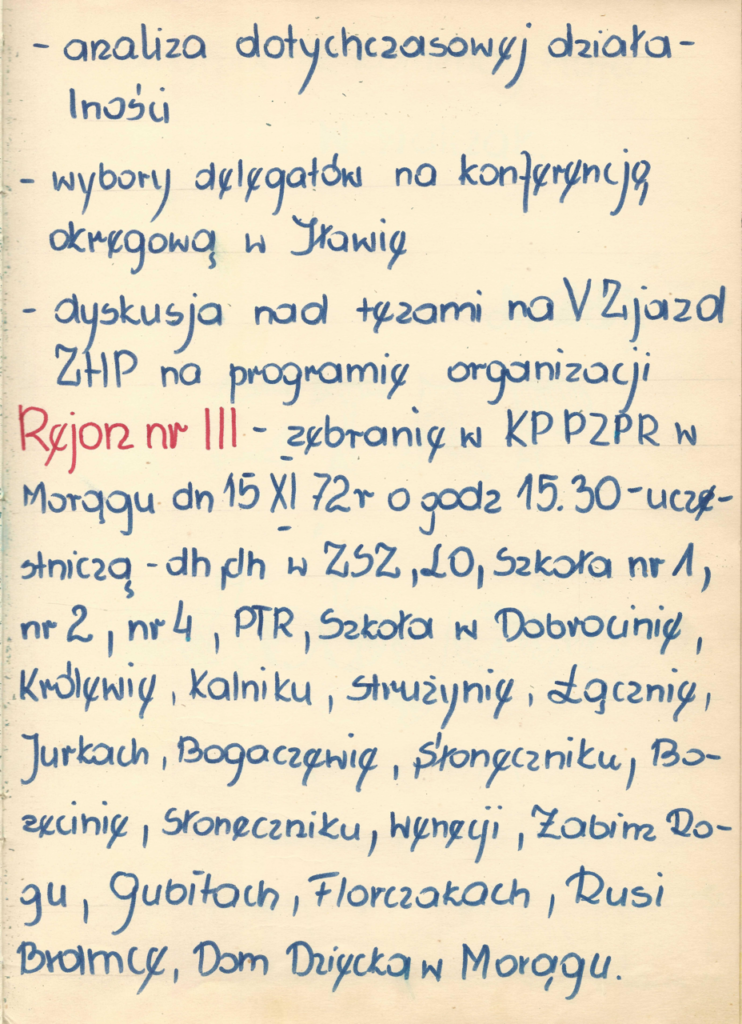 - analiza dotychczasowej działa-
lności
- wybory delegatów na konferencję
okręgową w Iławie
- dyskusja nad tezami na V Zjazd
ZHP na programie organizacji
Rejon nr III - zebranie w KP PZPR w
Morągu dn 15 XI 72r o godz 15.30 - ucze-
stniczą - dh dh w ZSZ, LO, Szkoła nr 1,
nr 2, nr 4, PTR, Szkoła w Dobrocinie,
Królewie, Kalniku, Strużynie, Łącznie,
Jurkach, Bogaczewie, Słoneczniku, Bo-
żęcinie, Słoneczniku, Wenecji, Żabim Ro-
gu, Gubitach, Florczakach, Rusi
Bramce, Dom Dziecka w Morągu.